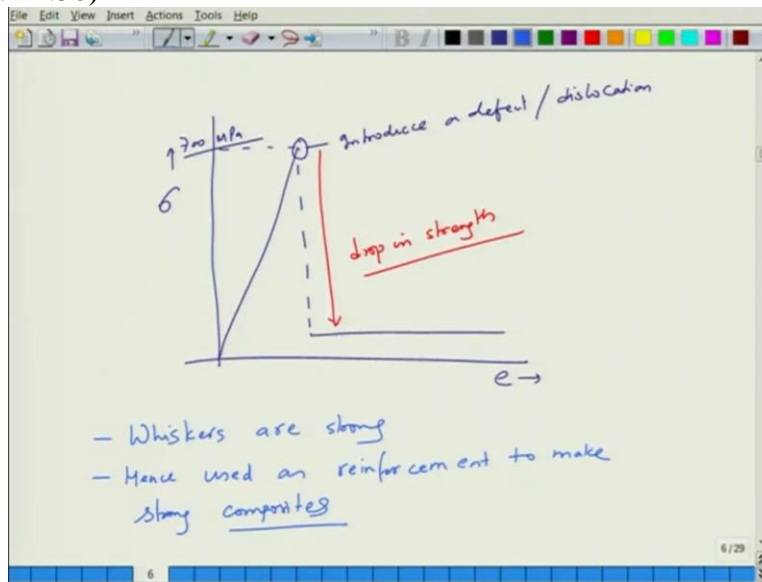 File Edit View Insert Actions Tools Help
B I
700 MPa
Introduce a defect / dislocation
σ
drop in strength
e →
- Whiskers are strong
- Hence used as reinforcement to make
strong composites
6/29
6